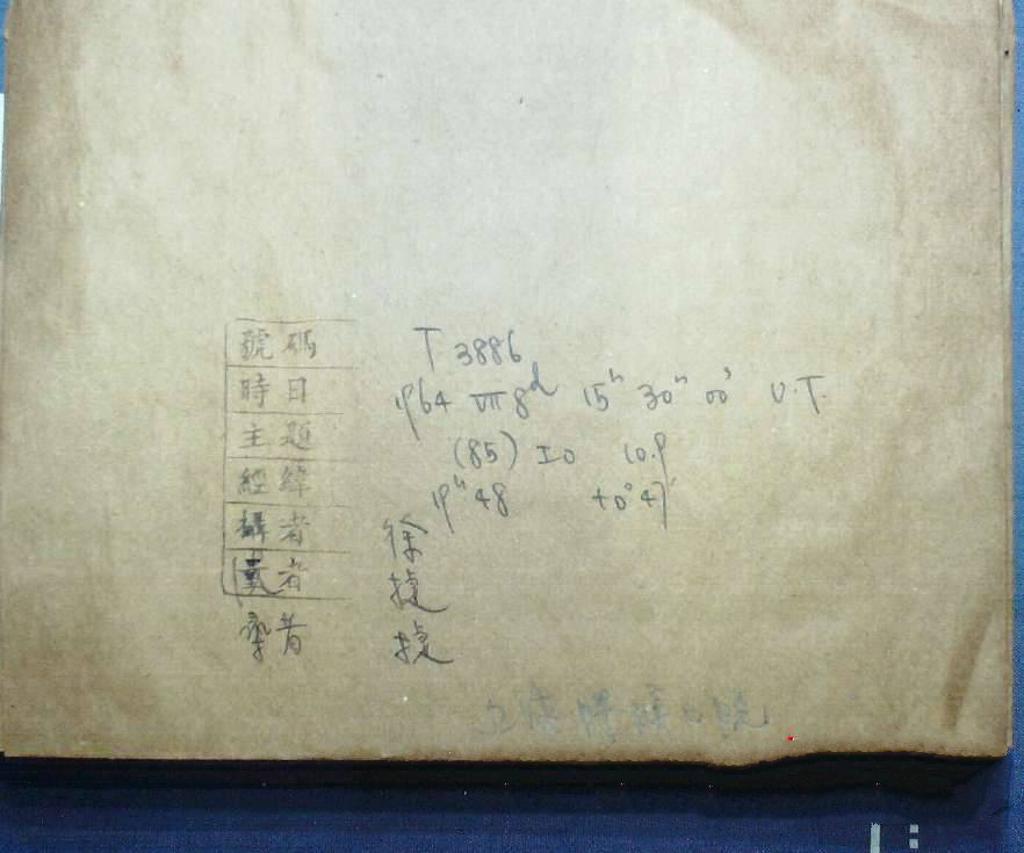 號碼 T 3886
時日 1964 VII 8d 15h 30m 00s U.T.
主題 (85) Io 10.9
經緯 19h 48 +0° 47'
攝者 徐
者 捷
者 捷